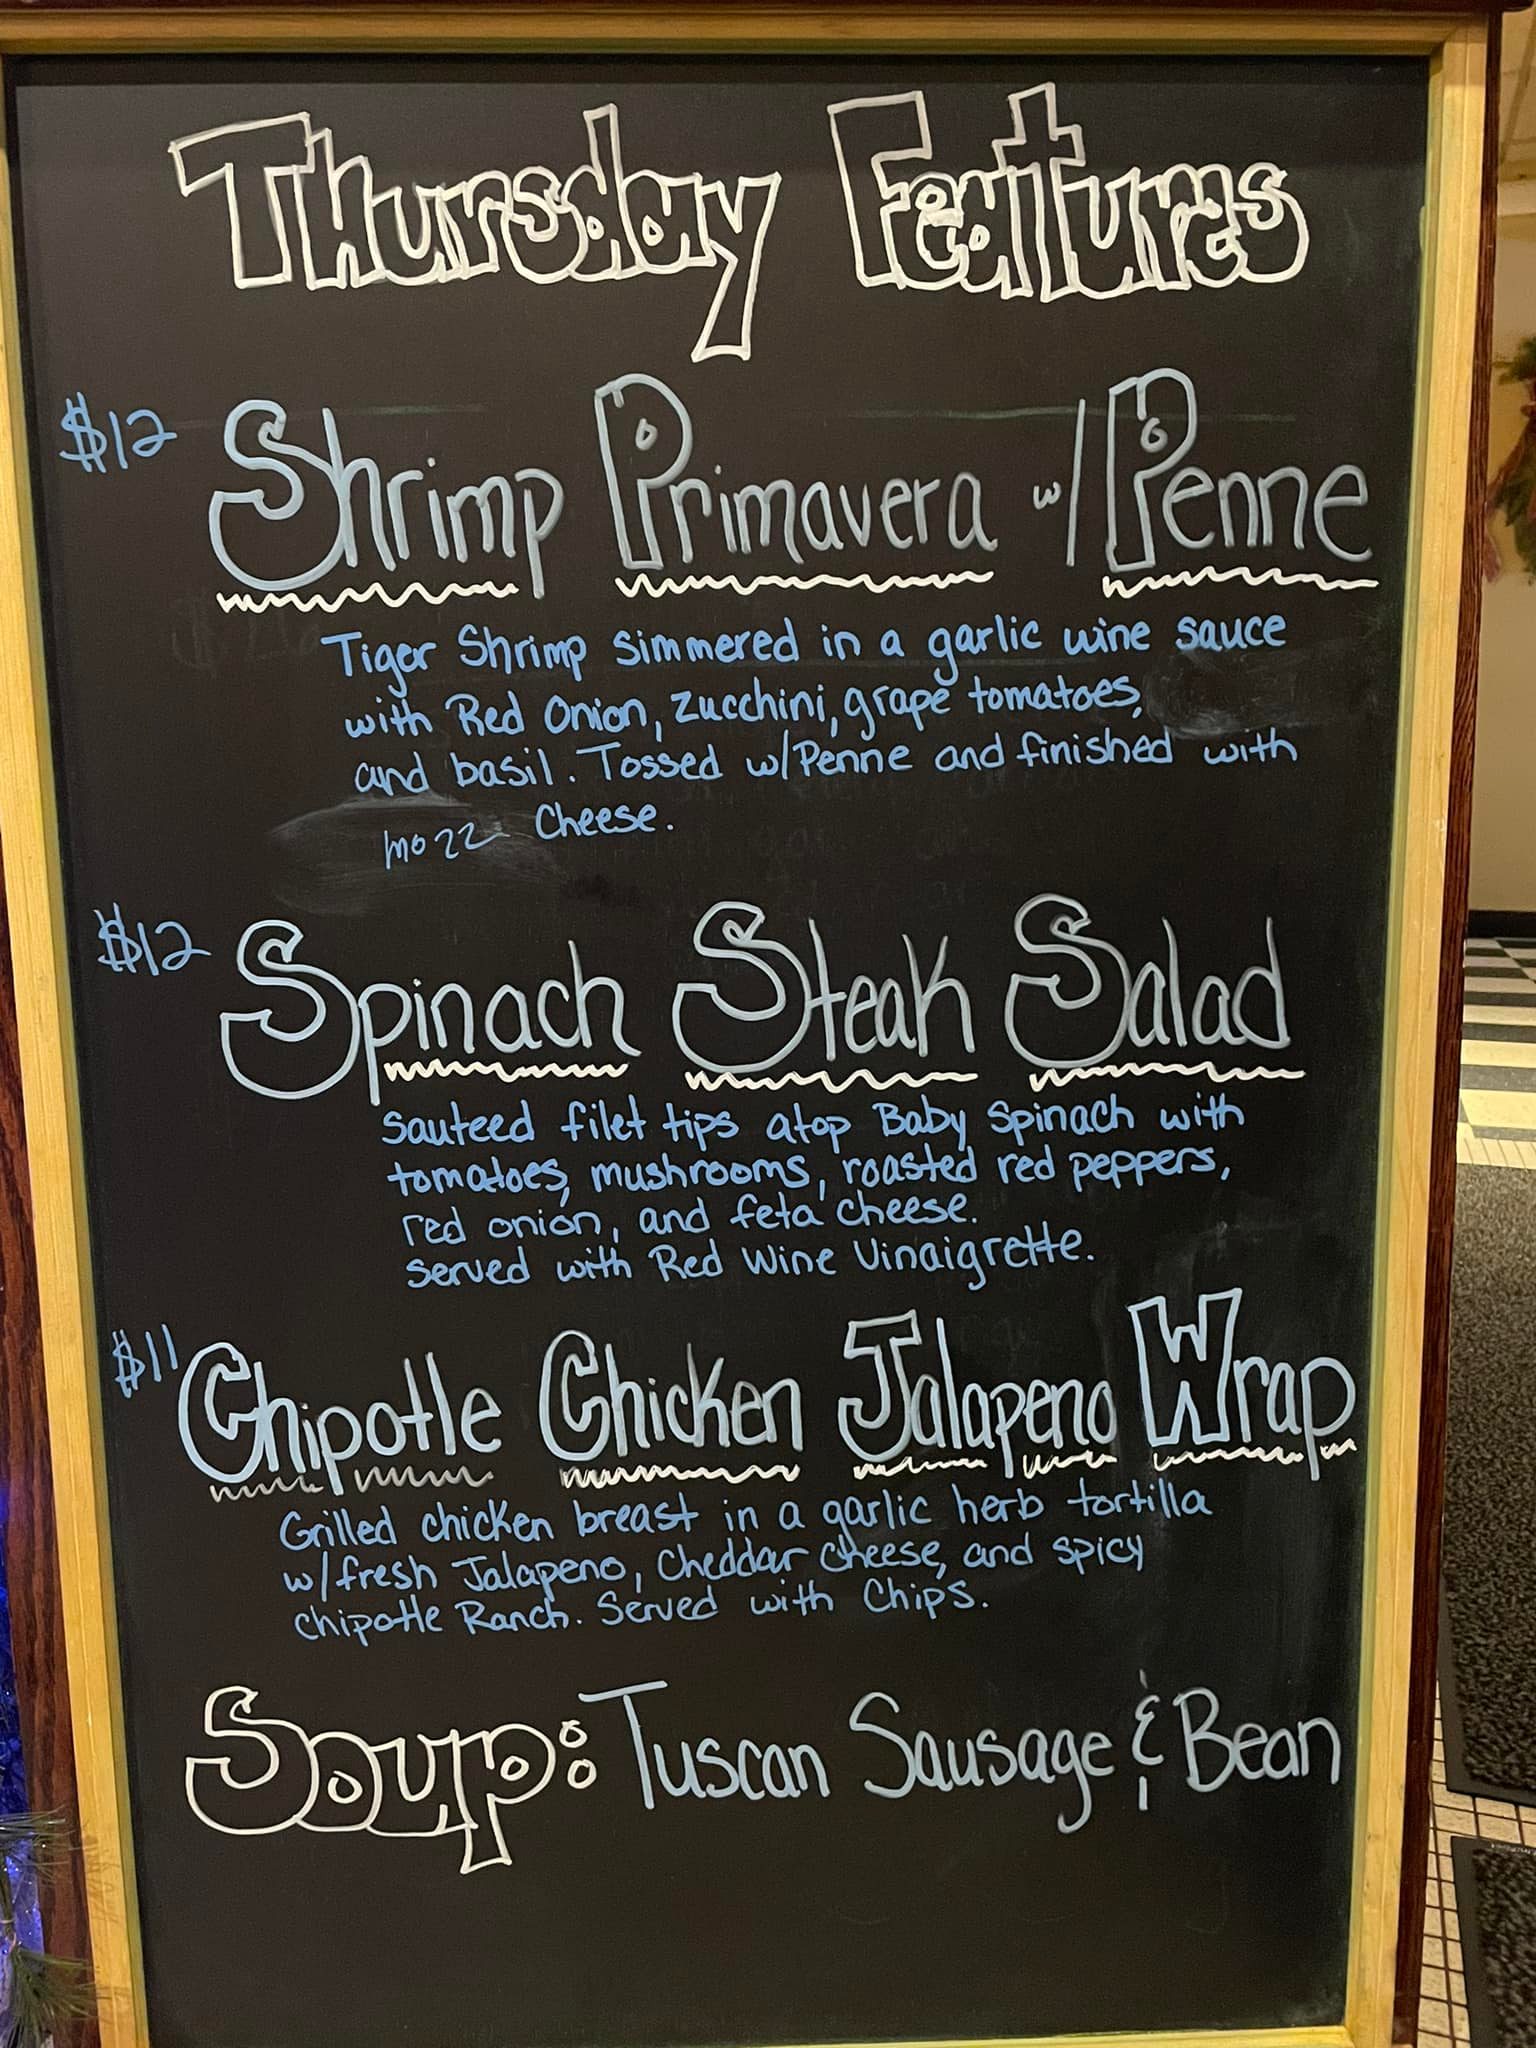 Thursday Features
$12 Shrimp Primavera w/ Penne
Tiger Shrimp simmered in a garlic wine sauce
with Red Onion, zucchini, grape tomatoes,
and basil. Tossed w/Penne and finished with
mozz Cheese.
$12 Spinach Steak Salad
Sauteed filet tips atop Baby Spinach with
tomatoes, mushrooms, roasted red peppers,
red onion, and feta cheese.
Served with Red Wine Vinaigrette.
$11 Chipotle Chicken Jalapeno Wrap
Grilled chicken breast in a garlic herb tortilla
w/fresh Jalapeno, Cheddar cheese, and spicy
chipotle Ranch. Served with Chips.
Soup: Tuscan Sausage & Bean